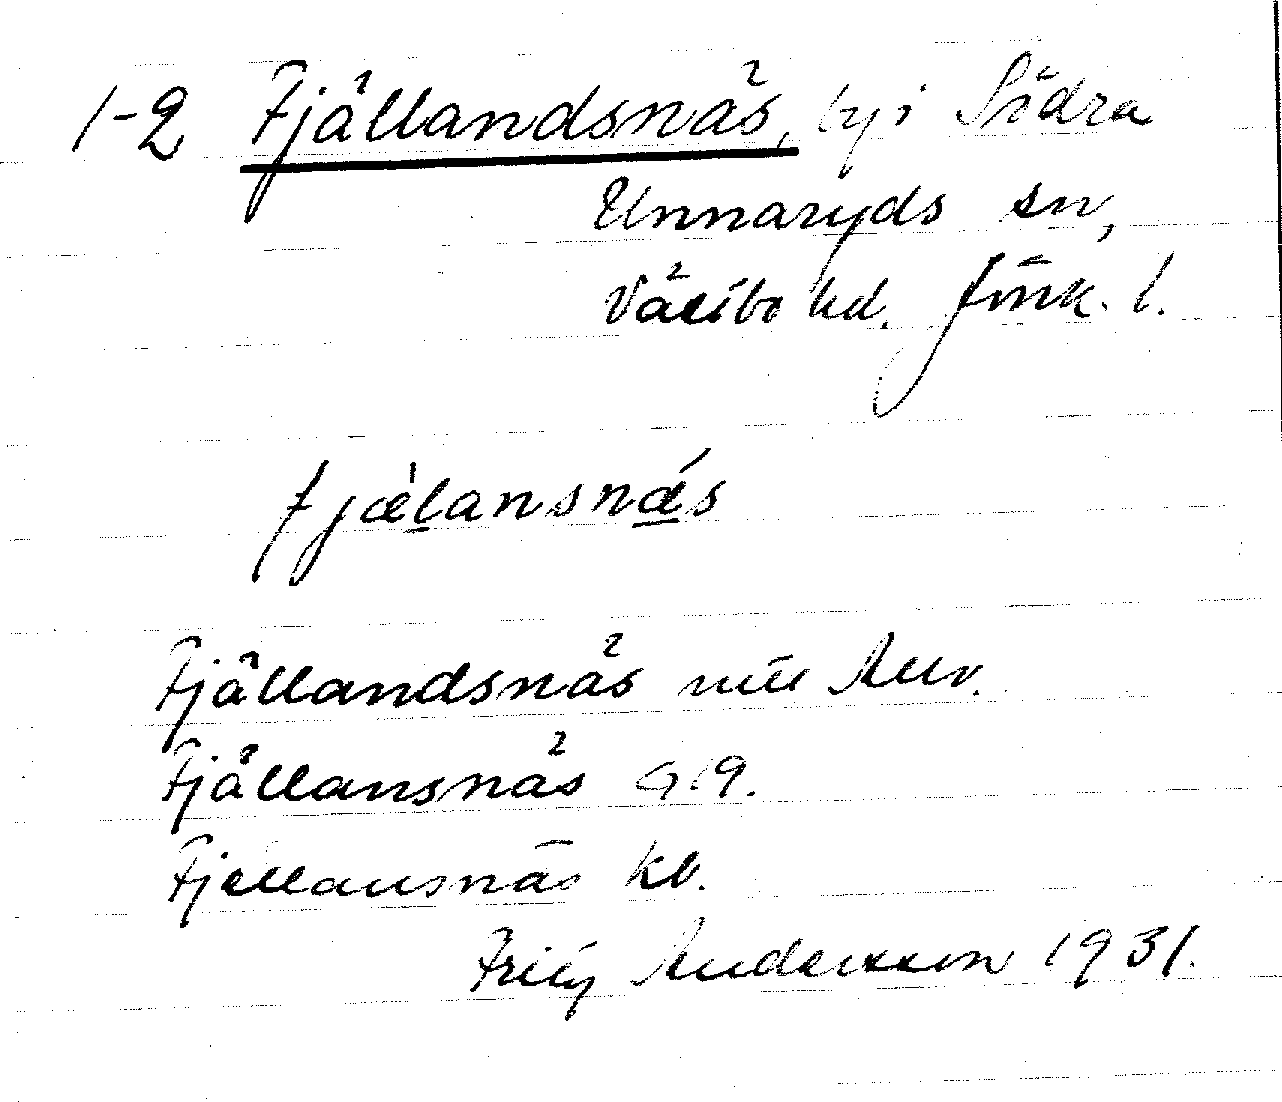 1-2 Fjällandsnäs, by i Södra
Unnaryds sn,
Västbo hd. Jönk. l.
fjælansnäs
Fjällandsnäs
Fjällansnäs G.19.
Fjellansnäs kb.
Andersson 1931.